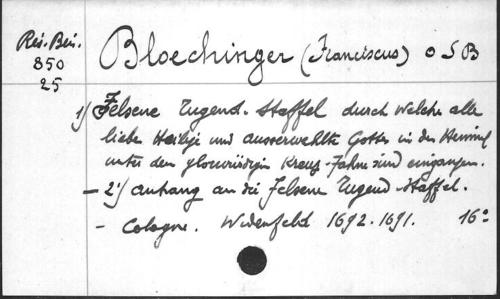 Res. Ben.
850
25
Bloechinger (Franciscus) O S B
1) Felsene Tugend-Staffel durch welche alle
liebe Heilige und ausserwehlte Gottes in den Hemmel
unter den glorwirdigin Kreuz-Fahne sind eingangen.
- 2) anhang an die Felsene Tugend-Staffel.
- Cologne. Widenfeld 1692-1691. 16°